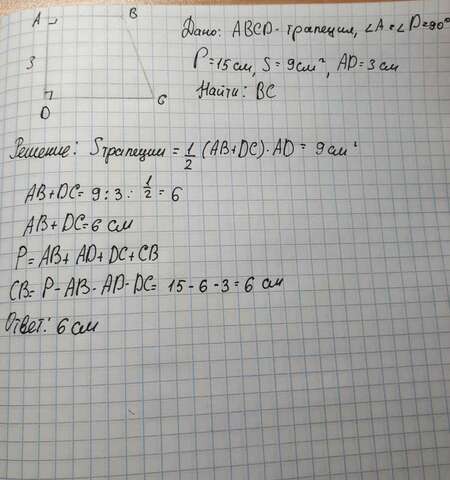 A
B
3
D
C
Дано: ABCD - трапеция, ∠A=∠D=90°
P=15 см, S=9 см², AD=3 см
Найти: BC
Решение: Sтрапеции = 1/2 (AB+DC)·AD = 9 см²
AB+DC= 9:3: 1/2 = 6
AB+DC=6 см
P=AB+AD+DC+CB
CB= P-AB-AD-DC= 15-6-3=6 см
Ответ: 6 см